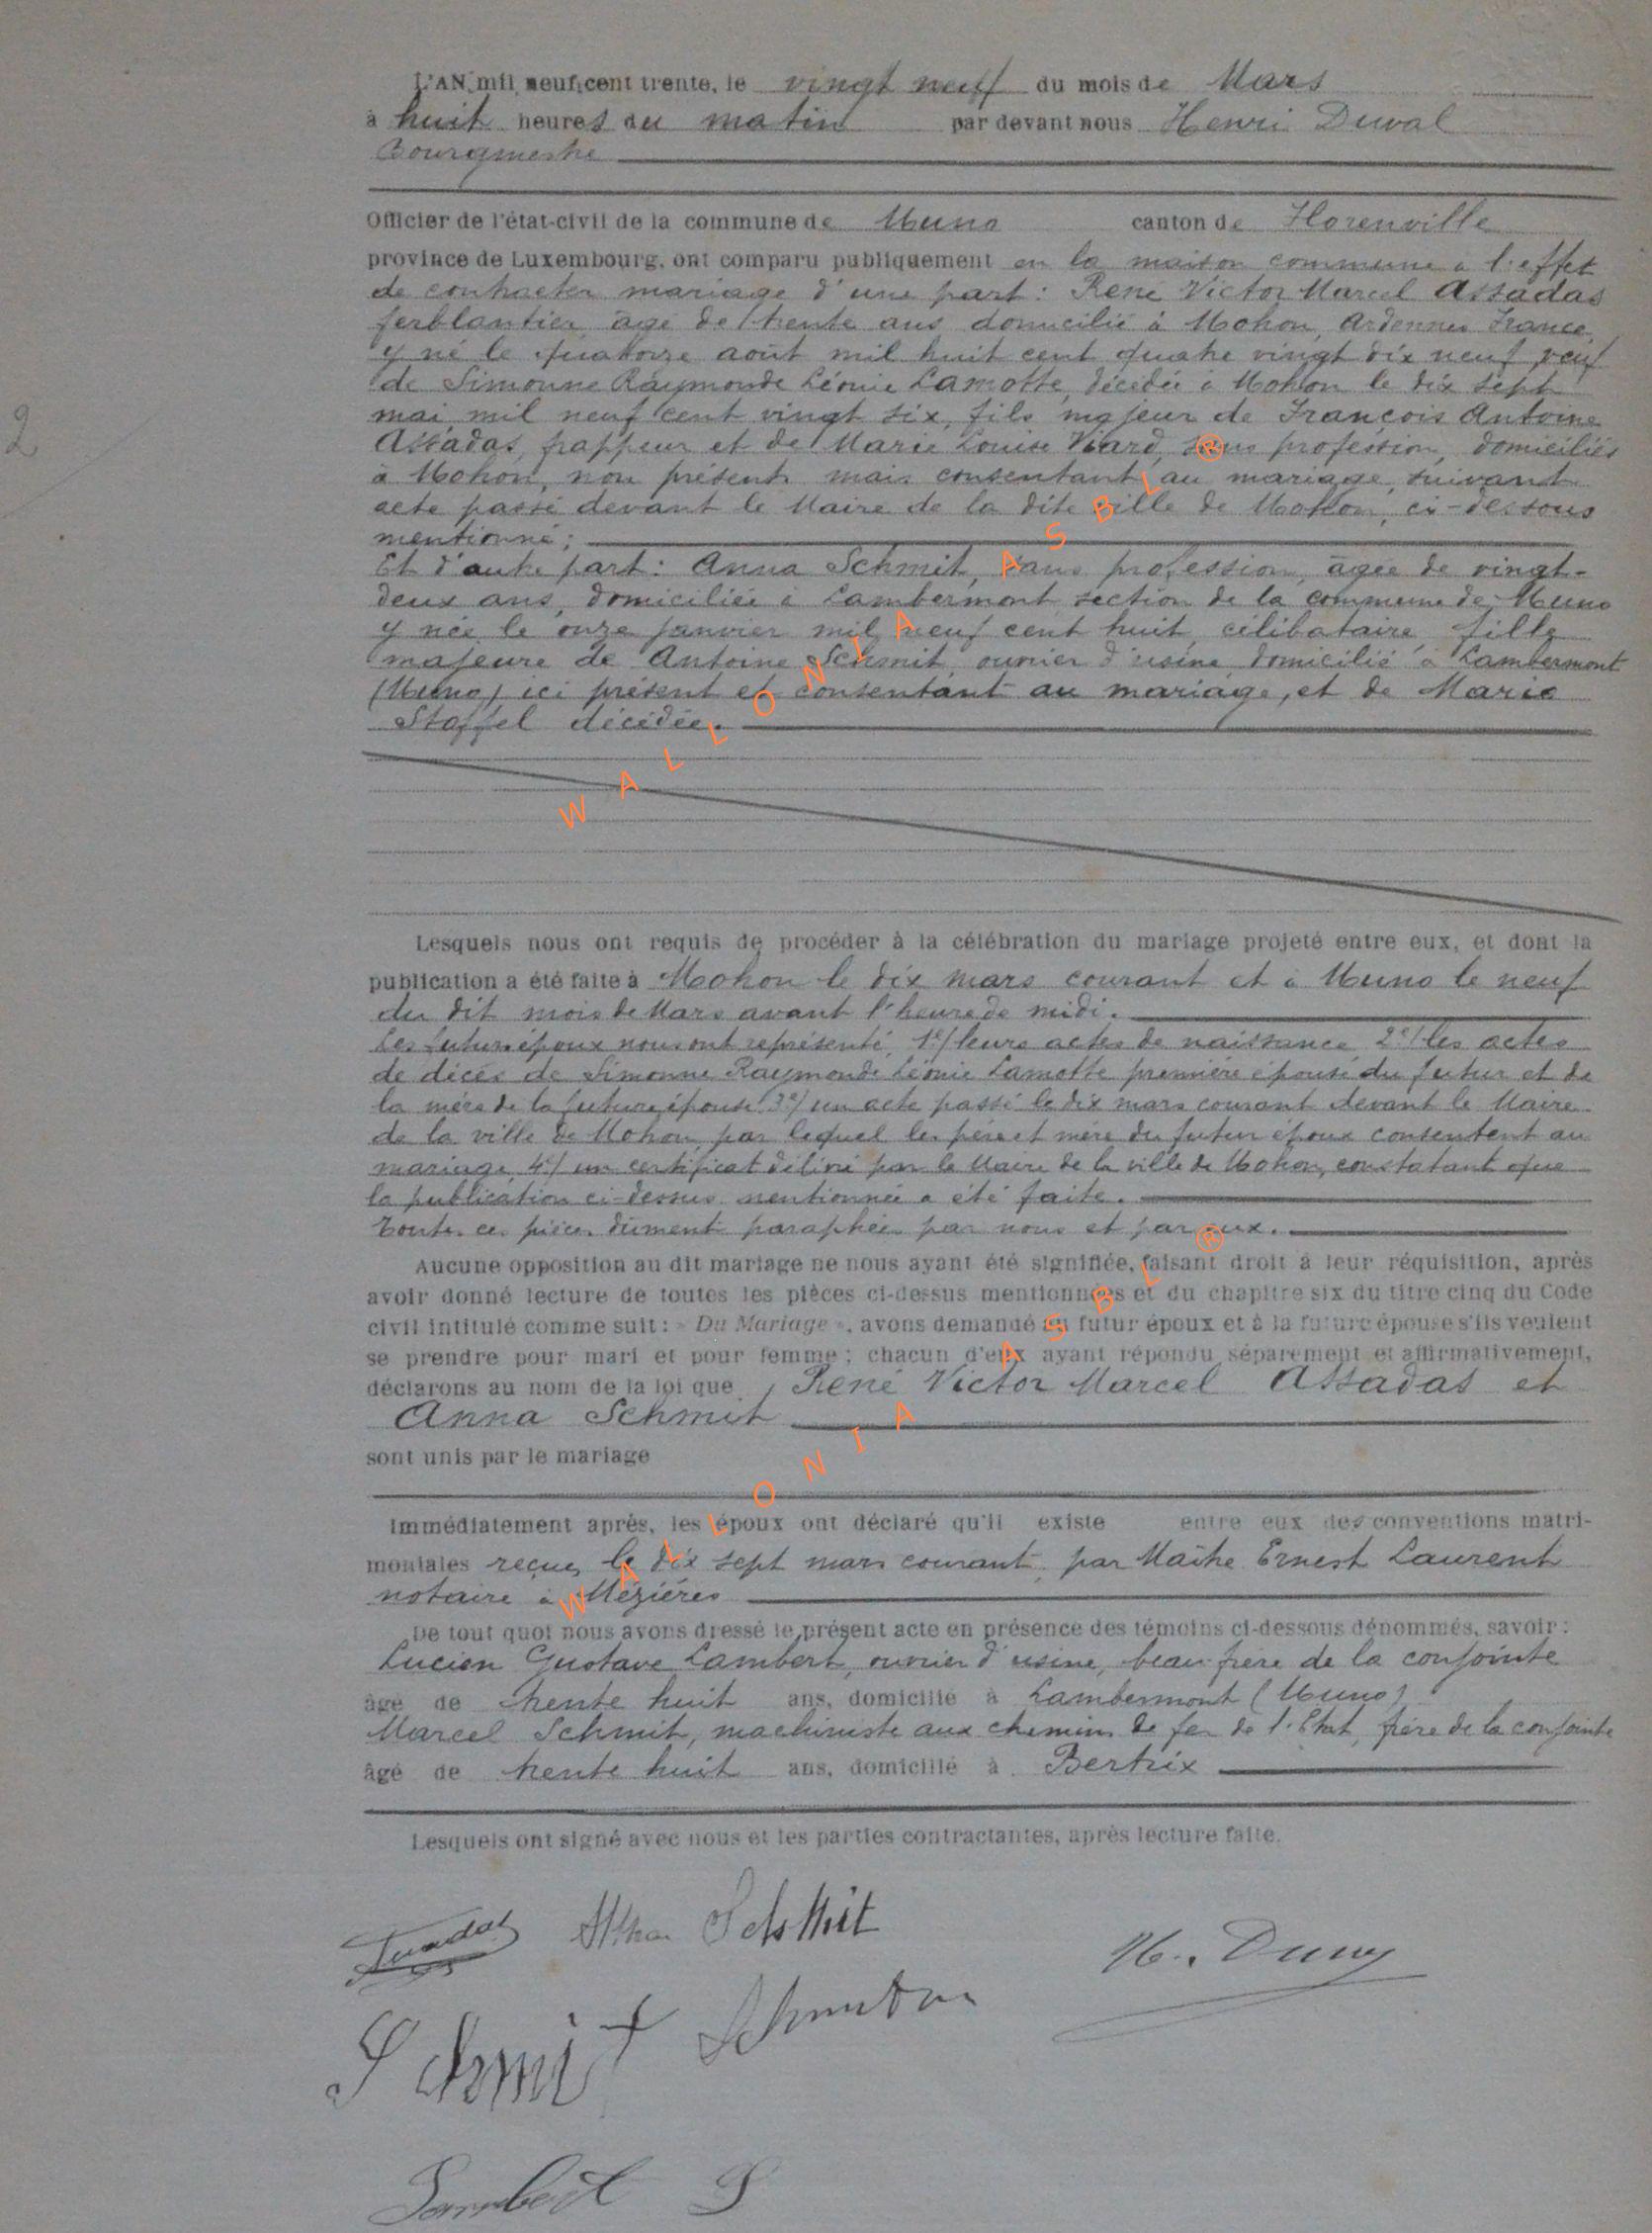 L'AN mil neuf cent trente, le vingt neuf du mois de Mars
à huit heures du matin par devant nous Henri Duval
Bourgmestre
Officier de l'état-civil de la commune de Muno canton de Florenville
province de Luxembourg, ont comparu publiquement en la maison commune à l'effet
de contracter mariage d'une part : René Victor Marcel Assadas
ferblantier âgé de trente ans domicilié à Mohon, Ardennes France,
y né le quatorze août mil huit cent quatre vingt dix neuf, veuf
de Simonne Raymonde Léonie Lamotte, décédée à Mohon le dix sept
mai mil neuf cent vingt six, fils majeur de François Antoine
Assadas, frappeur et de Marie Louise Viard, sans profession, domiciliés
à Mohon, non présents mais consentant au mariage, suivant
acte passé devant le Maire de la dite ville de Mohon, ci-dessous
mentionné ;
Et d'autre part : Anna Schmit, sans profession, âgée de vingt-
deux ans, domiciliée à Lambermont section de la commune de Muno
y née le onze janvier mil neuf cent huit, célibataire fille
majeure de Antoine Schmit ouvrier d'usine domicilié à Lambermont
(Muno) ici présent et consentant au mariage, et de Marie
Stoffel décédée.
WALLONIA ASBL ®
Lesquels nous ont requis de procéder à la célébration du mariage projeté entre eux, et dont la
publication a été faite à Mohon le dix mars courant et à Muno le neuf
du dit mois de Mars avant l'heure de midi.
Les futurs époux nous ont représenté, 1°/ leurs actes de naissance 2°/ les actes
de décès de Simonne Raymonde Léonie Lamotte première épouse du futur et de
la mère de la future épouse 3°/ un acte passé le dix mars courant devant le Maire
de la ville de Mohon, par lequel les père et mère du futur époux consentent au
mariage, 4°/ un certificat délivré par le Maire de la ville de Mohon, constatant que
la publication ci-dessus mentionnée a été faite.
Toutes ces pièces dûment paraphées par nous et par eux.
Aucune opposition au dit mariage ne nous ayant été signifiée, faisant droit à leur réquisition, après
avoir donné lecture de toutes les pièces ci-dessus mentionnées et du chapitre six du titre cinq du Code
civil intitulé comme suit : « Du Mariage », avons demandé au futur époux et à la future épouse s'ils veulent
se prendre pour mari et pour femme ; chacun d'eux ayant répondu séparement et affirmativement,
déclarons au nom de la loi que René Victor Marcel Assadas et
Anna Schmit
sont unis par le mariage
WALLONIA ASBL ®
Immédiatement après, les époux ont déclaré qu'il existe entre eux des conventions matri-
moniales reçues le dix sept mars courant, par Maître Ernest Laurent
notaire à Mézières
De tout quoi nous avons dressé le présent acte en présence des témoins ci-dessous dénommés, savoir :
Lucien Gustave Lambert, ouvrier d'usine, beau frère de la conjointe
âgé de trente huit ans, domicilié à Lambermont (Muno)
Marcel Schmit, machiniste aux chemins de fer de l'Etat, frère de la conjointe
âgé de trente huit ans, domicilié à Bertrix
Lesquels ont signé avec nous et les parties contractantes, après lecture faite.
Schmit
H.
Schmit
Lambert
2